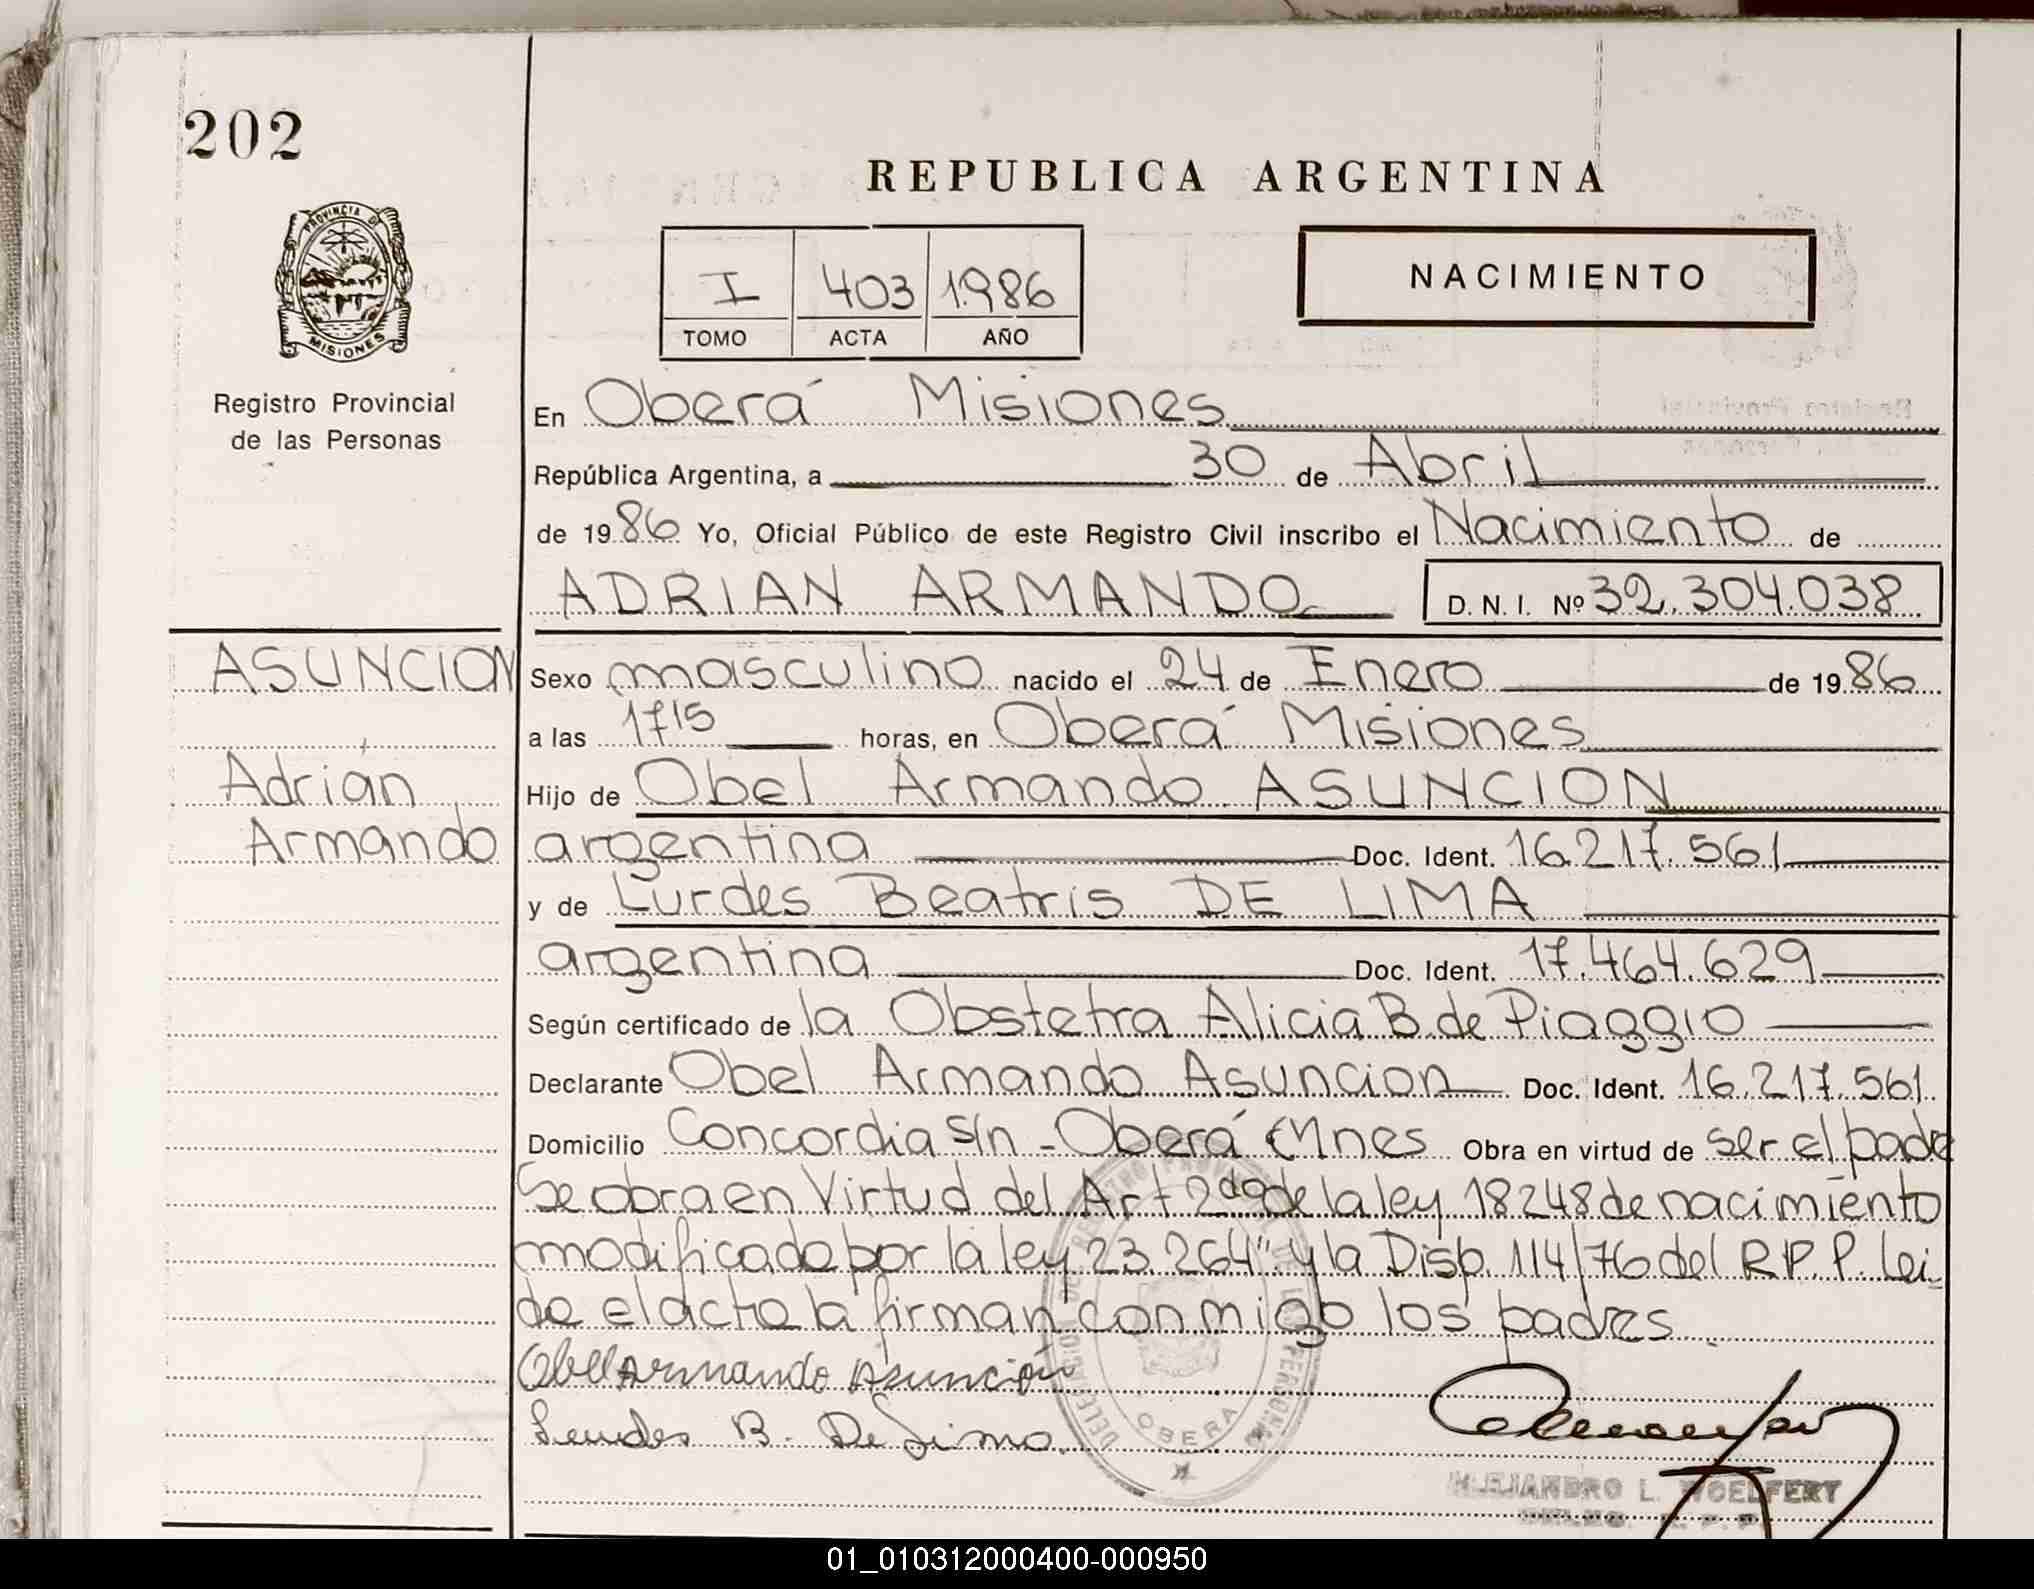 202
REPUBLICA ARGENTINA
PROVINCIA DE
MISIONES
I 403 1986
TOMO ACTA AÑO
NACIMIENTO
Registro Provincial
de las Personas
En Oberá Misiones
República Argentina, a 30 de Abril
de 1986 Yo, Oficial Público de este Registro Civil inscribo el Nacimiento de
ADRIAN ARMANDO D. N. I. Nº 32.304.038
ASUNCION
Adrián
Armando
Sexo masculino nacido el 24 de Enero de 1986
a las 17 15 horas, en Oberá Misiones
Hijo de Obel Armando ASUNCION
argentina Doc. Ident. 16.217.561
y de Lurdes Beatris DE LIMA
argentina Doc. Ident. 17.464.629
Según certificado de la Obstetra Alicia B. de Piaggio
Declarante Obel Armando Asuncion Doc. Ident. 16.217.561
Domicilio Concordia s/n - Oberá Mnes Obra en virtud de ser el padre
Se obra en Virtud del Art 2do de la ley 18248 de nacimiento
modificado por la ley 23.264" y la Disp. 114/76 del R.P.P. Lei-
do el acta la firman conmigo los padres
Obel Armando Asunción
Lurdes B. De Lima
DELEGACION DEL REGISTRO PROVINCIAL DE LAS PERSONAS
OBERA
ALEJANDRO L. WOELFERT
01_010312000400-000950